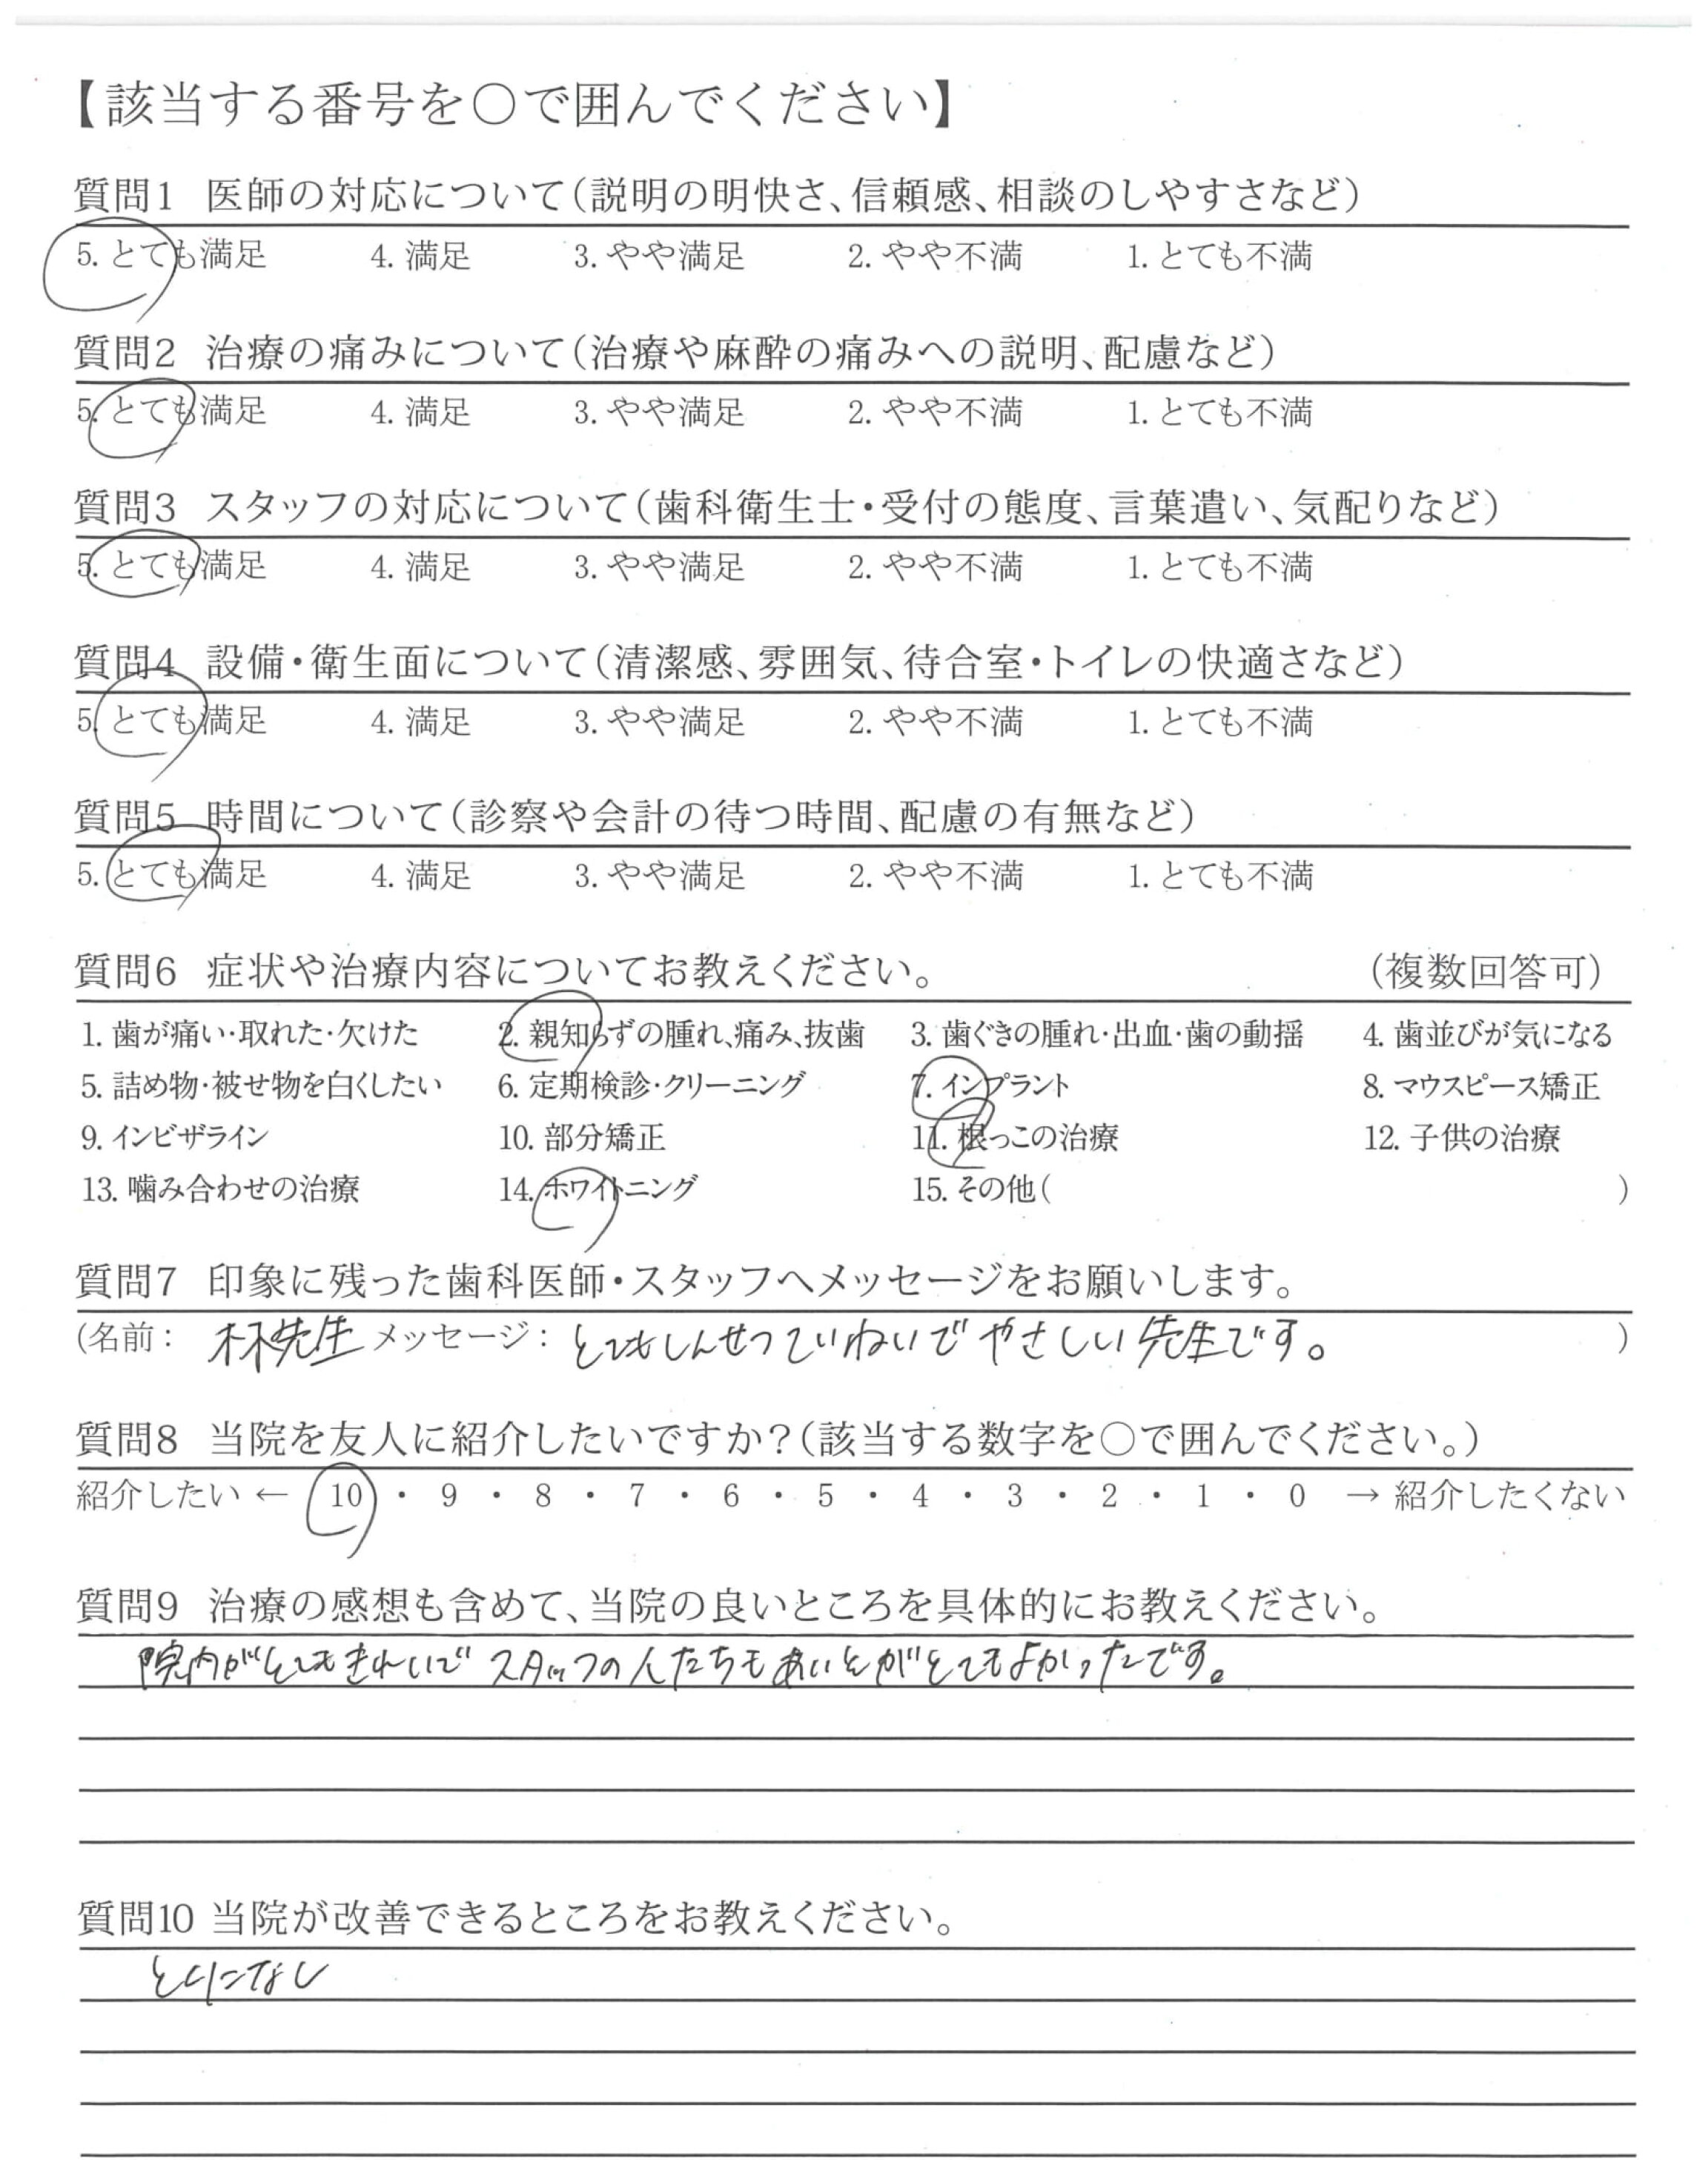 【該当する番号を○で囲んでください】
質問1 医師の対応について(説明の明快さ、信頼感、相談のしやすさなど)
5. とても満足 4. 満足 3. やや満足 2. やや不満 1. とても不満
質問2 治療の痛みについて(治療や麻酔の痛みへの説明、配慮など)
5. とても満足 4. 満足 3. やや満足 2. やや不満 1. とても不満
質問3 スタッフの対応について(歯科衛生士・受付の態度、言葉遣い、気配りなど)
5. とても満足 4. 満足 3. やや満足 2. やや不満 1. とても不満
質問4 設備・衛生面について(清潔感、雰囲気、待合室・トイレの快適さなど)
5. とても満足 4. 満足 3. やや満足 2. やや不満 1. とても不満
質問5 時間について(診察や会計の待つ時間、配慮の有無など)
5. とても満足 4. 満足 3. やや満足 2. やや不満 1. とても不満
質問6 症状や治療内容についてお教えください。 (複数回答可)
1. 歯が痛い・取れた・欠けた 2. 親知らずの腫れ、痛み、抜歯 3. 歯ぐきの腫れ・出血・歯の動揺 4. 歯並びが気になる
5. 詰め物・被せ物を白くしたい 6. 定期検診・クリーニング 7. インプラント 8. マウスピース矯正
9. インビザライン 10. 部分矯正 11. 根っこの治療 12. 子供の治療
13. 噛み合わせの治療 14. ホワイトニング 15. その他( )
質問7 印象に残った歯科医師・スタッフへメッセージをお願いします。
(名前: 林先生 メッセージ: とてもしんせつていねいでやさしい先生です。 )
質問8 当院を友人に紹介したいですか?(該当する数字を○で囲んでください。)
紹介したい ← 10 ・ 9 ・ 8 ・ 7 ・ 6 ・ 5 ・ 4 ・ 3 ・ 2 ・ 1 ・ 0 → 紹介したくない
質問9 治療の感想も含めて、当院の良いところを具体的にお教えください。
院内がとてもきれいでスタッフの人たちもあいそがとてもよかったです。
質問10 当院が改善できるところをお教えください。
とくになし